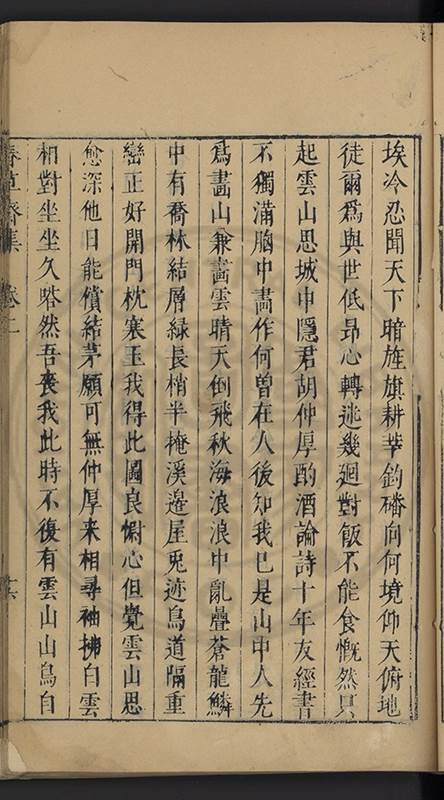 埃冷忍聞天下暗旌旗耕莘釣磻向何境仰天俯地
徒爾爲與世低昂心轉迷幾廻對飯不能食慨然只
起雲山思城中隱君胡仲厚酌酒論詩十年友經書
不獨滿胸中畵作何曾在人後知我已是山中人先
爲畵山兼畵雲晴天倒飛秋海浪浪中亂疊蒼龍鱗
中有喬林結層綠長梢半掩溪邊屋兎迹鳥道隔重
巒正好開門枕寒玉我得此圖良慰心但覺雲山思
愈深他日能償結茅願可無仲厚来相尋袖拂白雲
相對坐坐久嗒然吾喪我此時不復有雲山山鳥自
春草齋集 卷二 十六